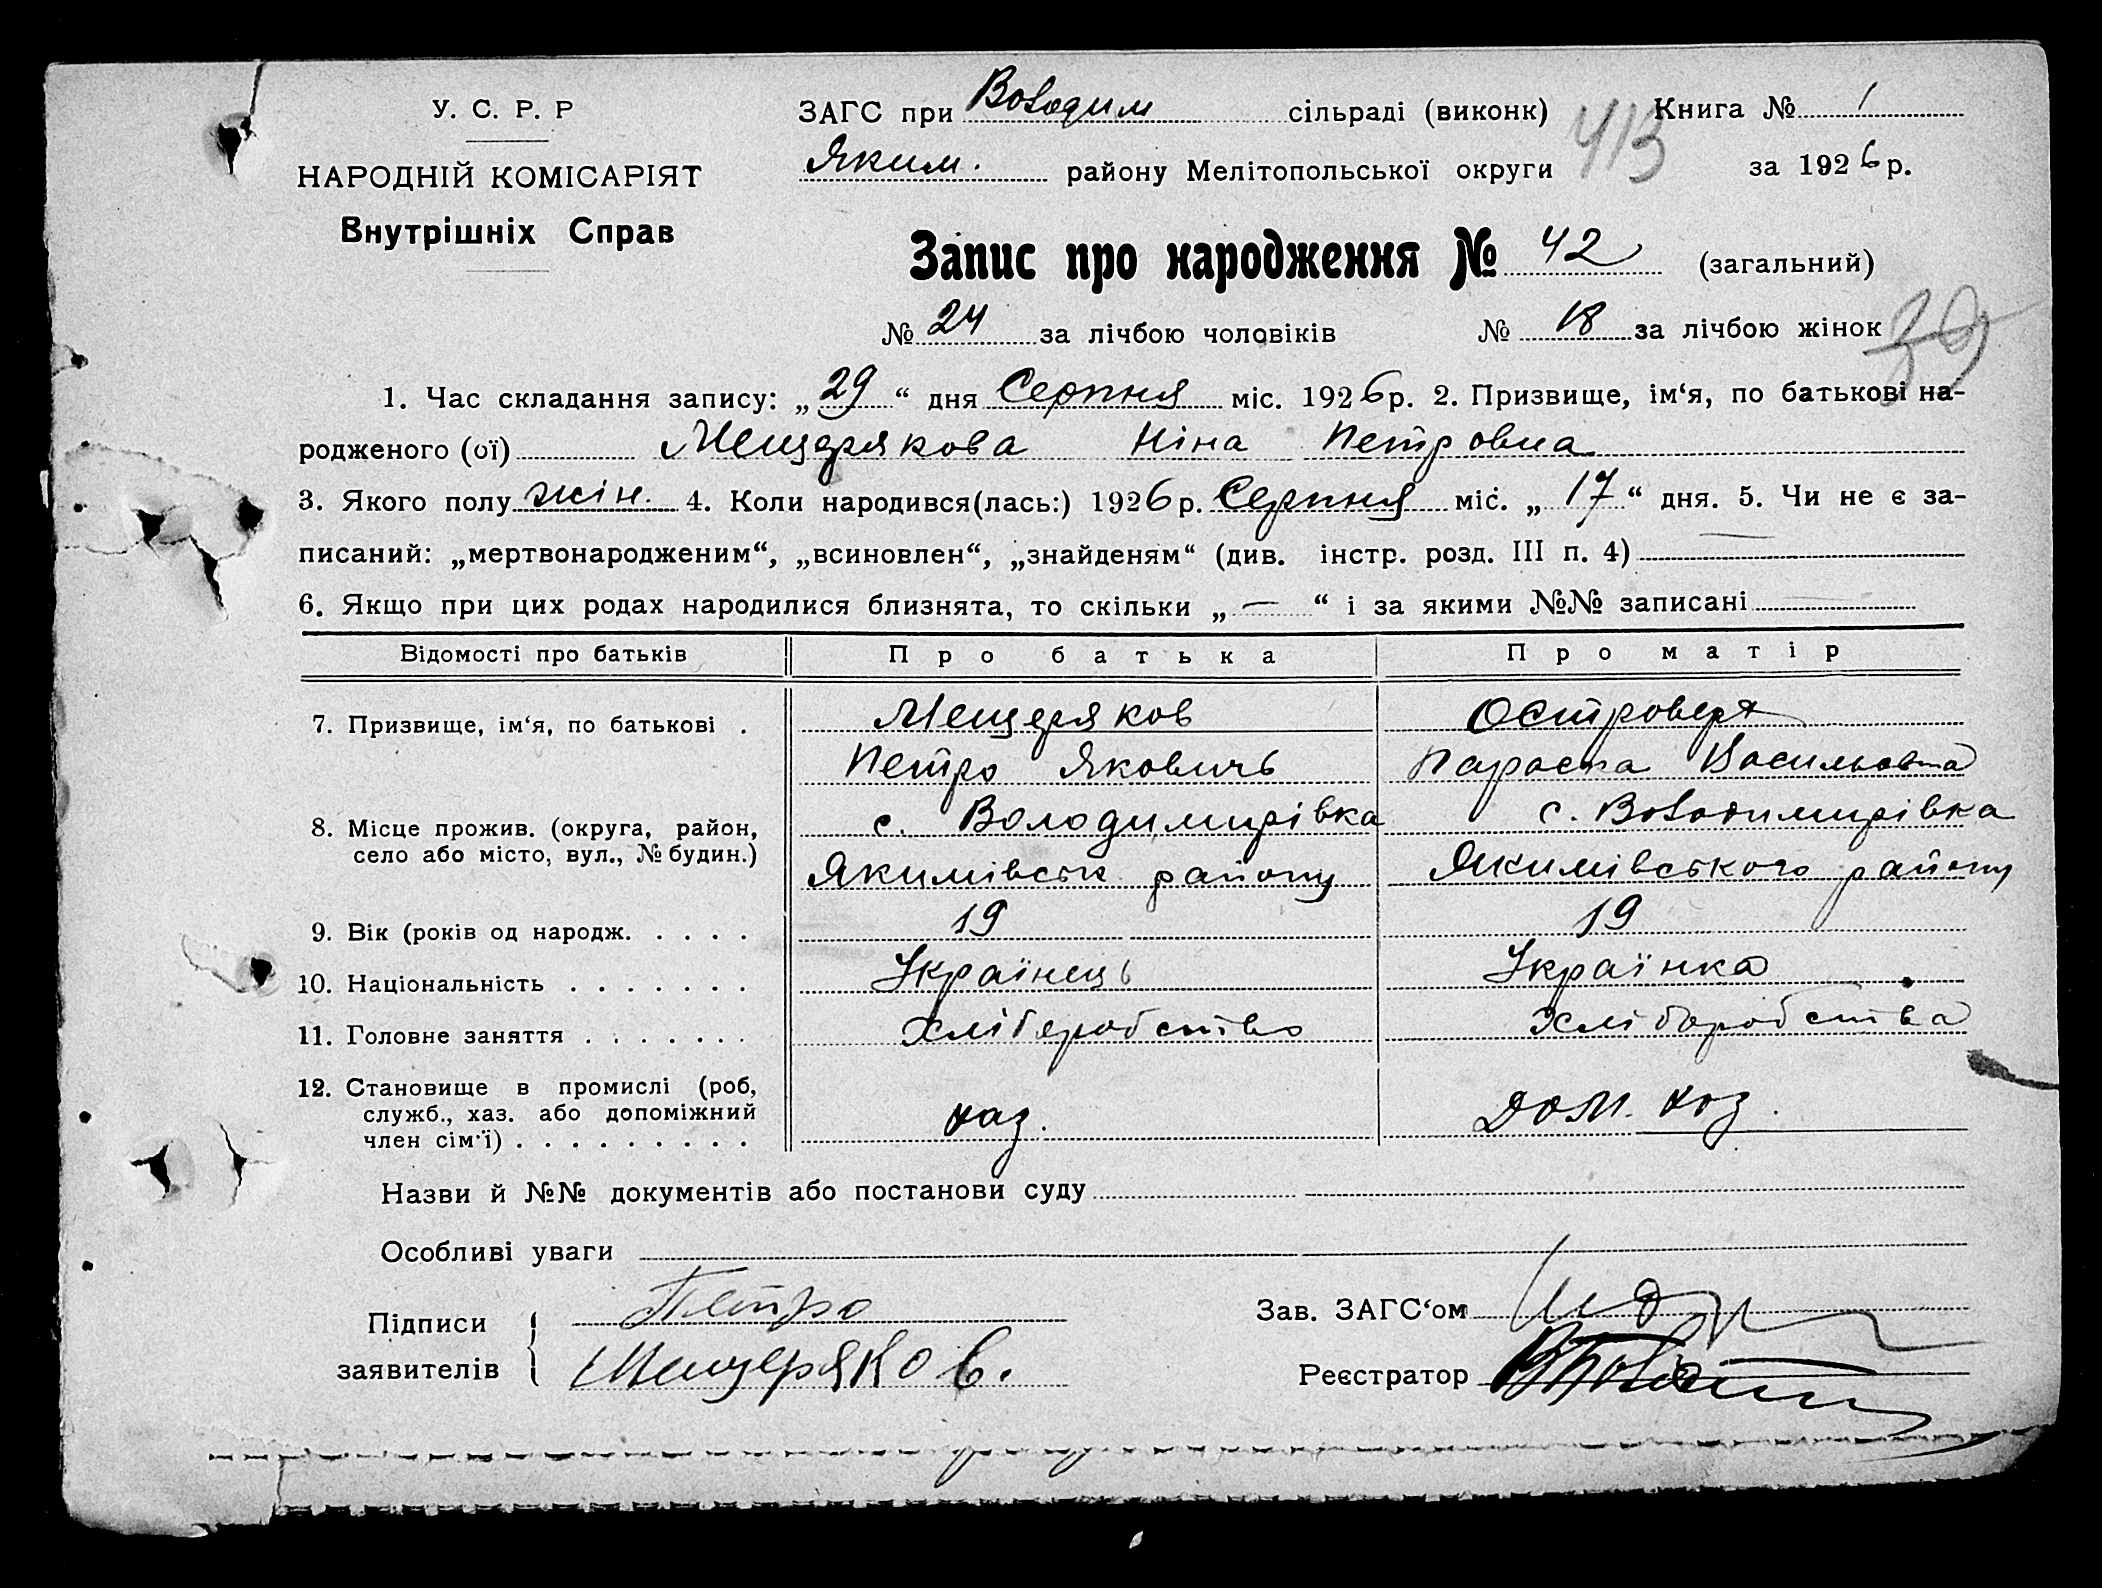 У. С. Р. Р
НАРОДНІЙ КОМІСАРІЯТ
Внутрішніх Справ
ЗАГС при Володим сільраді (виконк) Книга № 1
Яким. району Мелітопольської округи 413 за 1926 р.
Запис про народження № 42 (загальний)
№ 24 за лічбою чоловіків № 18 за лічбою жінок
1. Час складання запису: „29“ дня Серпня міс. 1926 р. 2. Призвище, ім‘я, по батькові на-
родженого (ої) Мещерякова Ніна Петровна
3. Якого полу жін. 4. Коли народився(лась:) 1926 р. Серпня міс. „17“ дня. 5. Чи не є за-
писаний: „мертвонародженим“, „всиновлен“, „знайденям“ (див. інстр. розд. III п. 4) —
6. Якщо при цих родах народилися близнята, то скільки „ — “ і за якими №№ записані —
Відомості про батьків Про батька Про матір
7. Призвище, ім‘я, по батькові . Мещеряков Островерх
Петро Яковичь Параска Васильовна
8. Місце прожив. (округа, район, с. Володимирівка с. Володимирівка
село або місто, вул., № будин.) Якимівськ району Якимівського району
9. Вік (років од народж. . . . . 19 19
10. Національність . . . . . . . Українець Українка
11. Головне заняття . . . . . . . Хліборобство Хліборобства
12. Становище в промислі (роб,
служб., хаз. або допоміжний хаз. дом. хоз.
член сім‘ї) . . . . . . . . .
Назви й №№ документів або постанови суду
Особливі уваги
Підписи Петро Зав. ЗАГС‘ом
заявителів Мещеряков. Реєстратор